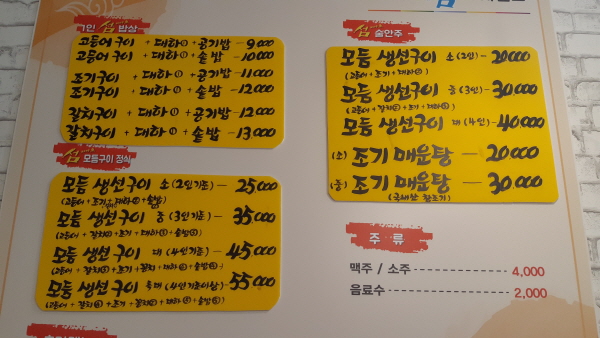 1인 섬 밥상
고등어구이 + 대하① + 공기밥 - 9000
고등어구이 + 대하① + 솥밥 - 10000
조기구이 + 대하① + 공기밥 - 11000
조기구이 + 대하① + 솥밥 - 12000
갈치구이 + 대하① + 공기밥 - 12000
갈치구이 + 대하① + 솥밥 - 13000
섬 모듬구이 정식
모듬 생선구이 소(2인기준) - 25000
(고등어 + 조기 + 대하② + 솥밥)
모듬 생선구이 중(3인기준) - 35000
(고등어 + 갈치 + 조기 + 대하③ + 솥밥③)
모듬 생선구이 대(4인기준) - 45000
모듬 생선구이 특대(4인기준이상) - 55000
섬 술안주
모듬 생선구이 소(2인) - 20000
(고등어 + 조기 + 대하②)
모듬 생선구이 중(3인) - 30000
(고등어 + 갈치 + 조기 + 대하③)
모듬 생선구이 대(4인) - 40000
(소) 조기 매운탕 - 20000
(중) 조기 매운탕 - 30000
(국내산 참조기)
주 류
맥주 / 소주 4,000
음료수 2,000